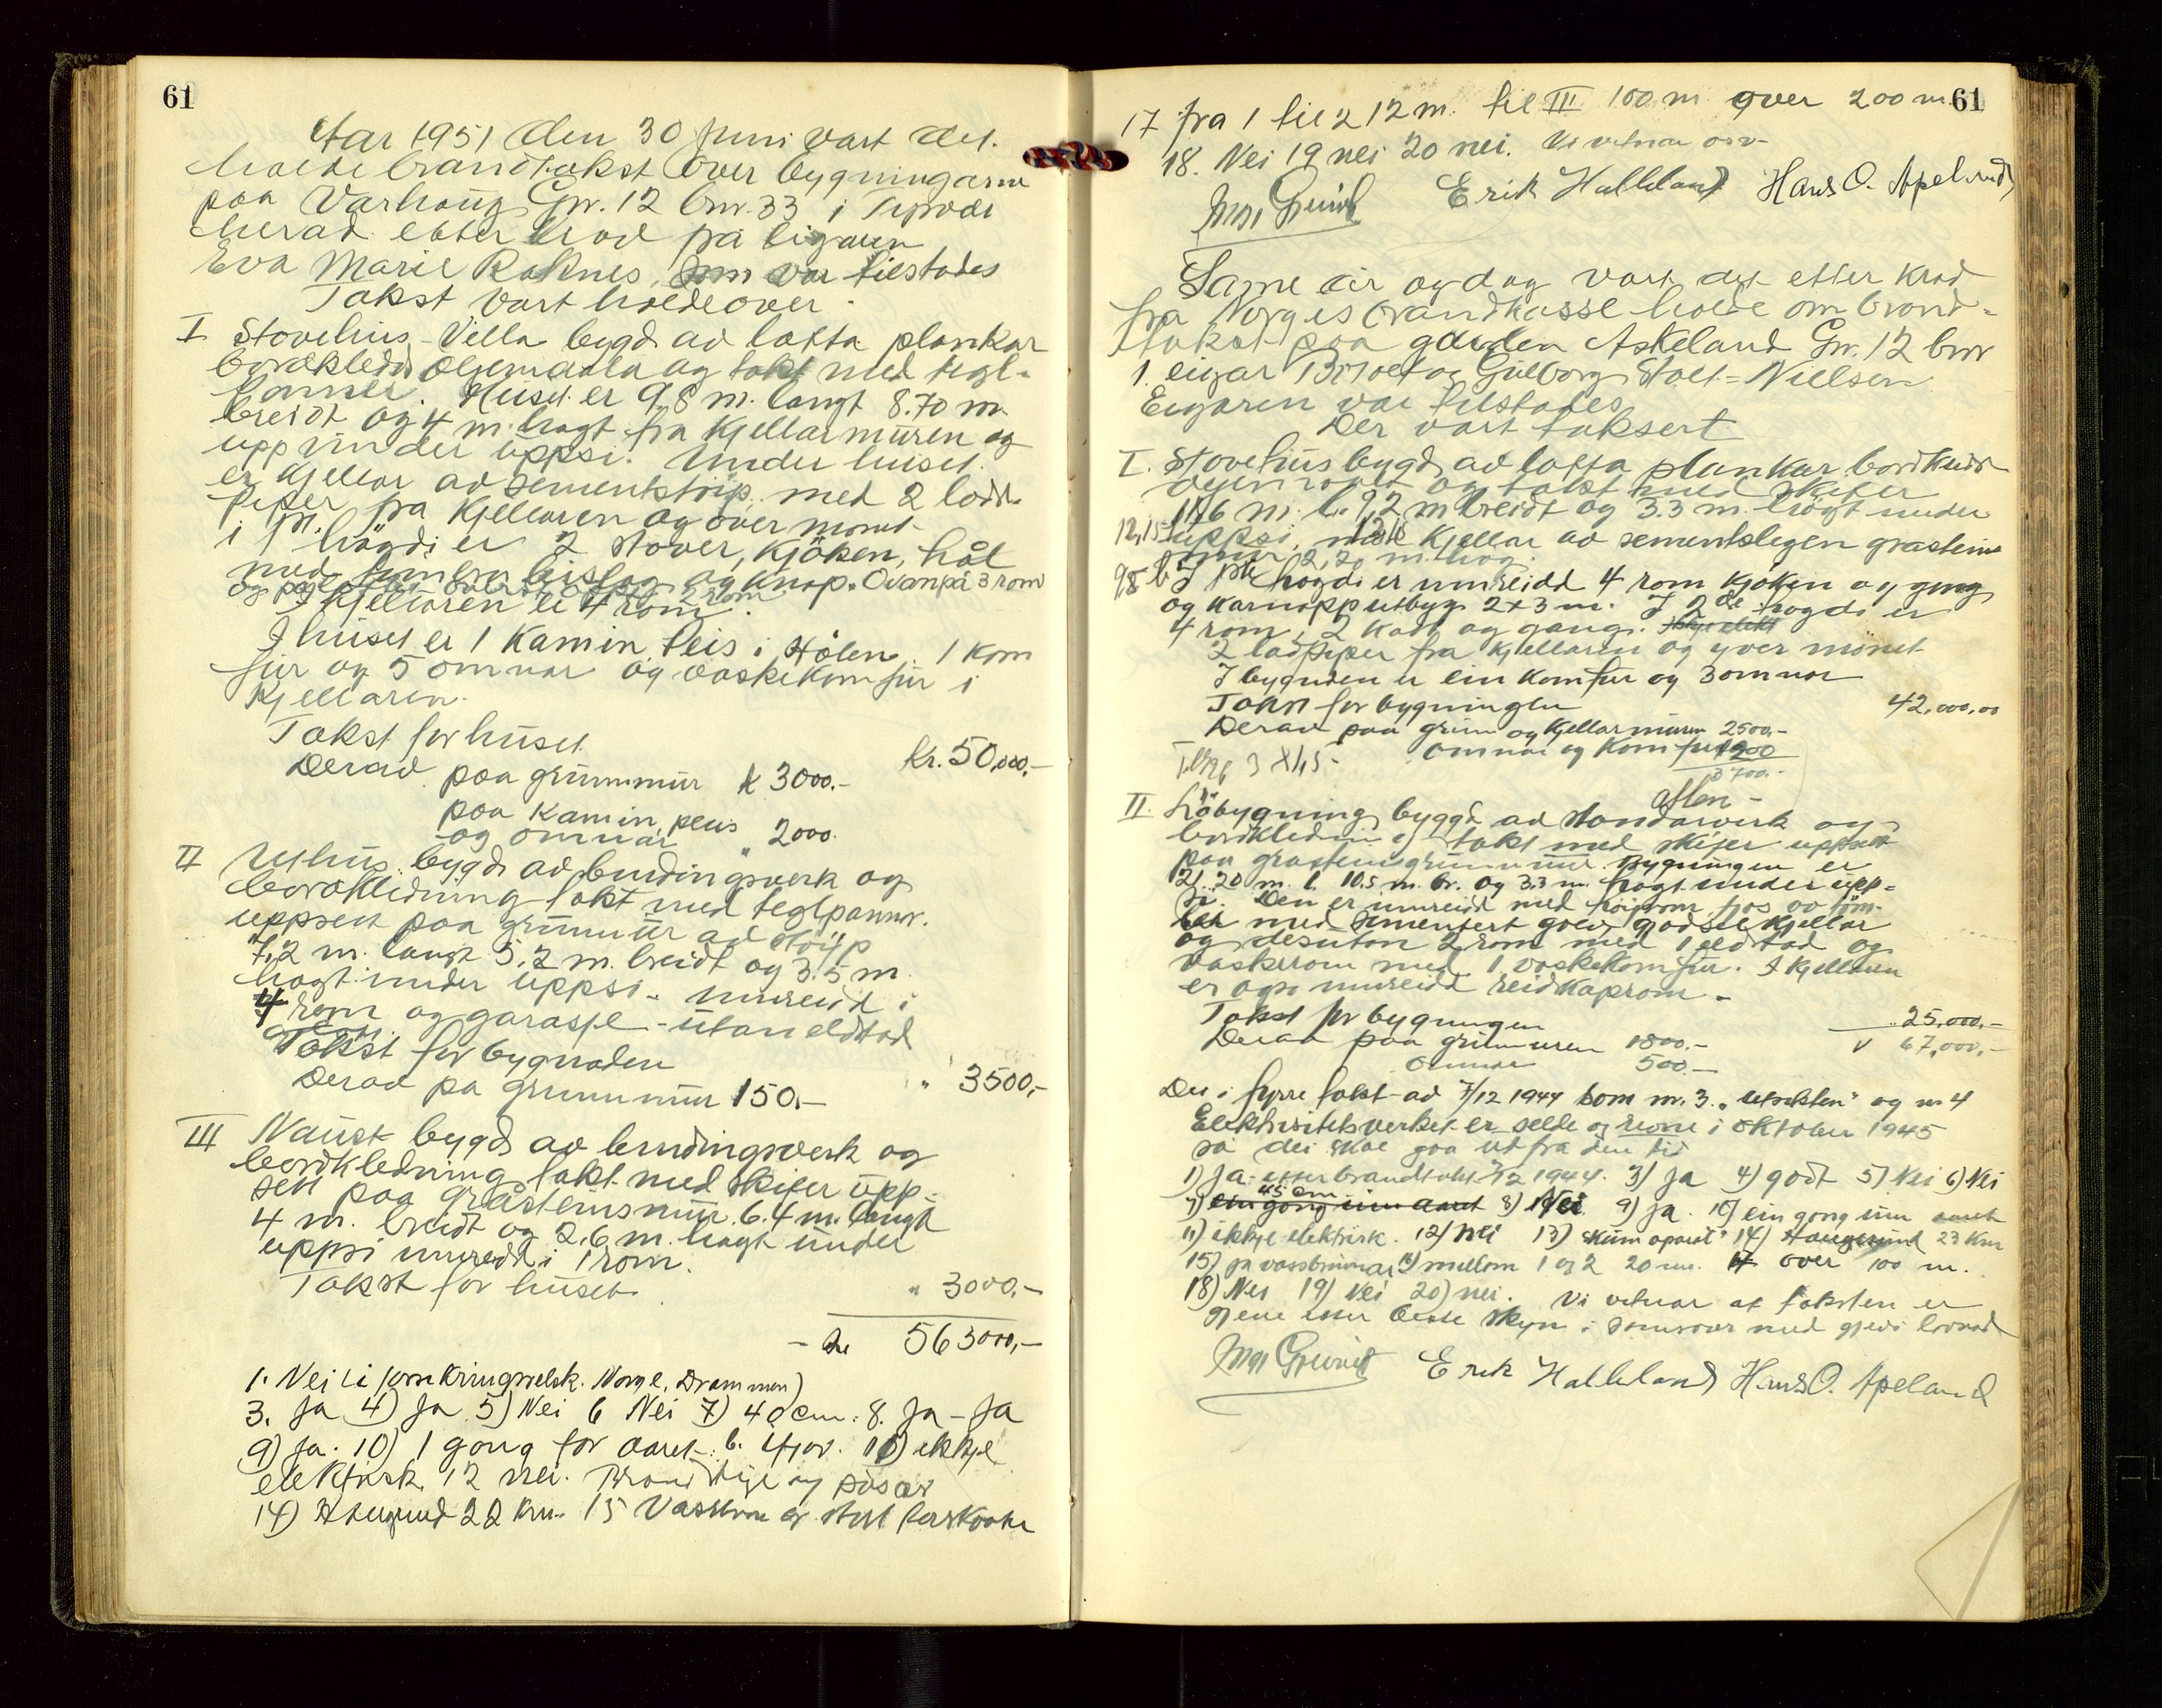 61
Aar 1951 den 30 Juni vart det
halde brandtakst over bygningarne
paa Varhaug Gnr. 12 bnr. 33 i
herad etter krav frå eigaren
Eva Marie Raknes, som var tilstades
Takst vart halde over
I Stovehus - Villa bygd av lafta plankar
bordkledd oljemaala og takt med tegl-
panner. Huset er 9,8 m. langt 8.70 m
breidt og 4 m. høgt fra kjellarmuren og
upp under uppsi. Under huset
er kjellar av sementstöip, med 2 lodd-
piper fra kjellaren og over mønet
i 1st. høgdi er 2 stover, kjöken, hål
med og knap. Ovanpå 3 rom
og
I kjellaren er 4 rom.
I huset er 1 Kamin Peis i Hålen. 1 kom
fur og 5 omnar og vaskekomfur i
kjellaren.
Takst for huset
kr. 50,000,-
Derav paa grunnmur k 3000.-
paa Kamin, peis
og omnar " 2000.
II Uthus bygd av bindingsverk og
bordkledning takt med teglpanner.
uppsett paa grunnmur av støyp
7,2 m. langt 5,2 m. breidt og 3.5 m.
høgt under uppsi - innreidd i
4 rom og garasje - utan eldstad
Takst for bygnaden
" 3500,-
Derav pa grunnmur 150.-
III Naust bygd av bindingsverk og
bordkledning takt med skifer upp-
sett paa gråsteinsmur. 6.4 m. langt
4 m. breidt og 2,6 m. høgt under
uppsi innreidd i 1 rom.
Takst for huset
" 3000.-
563000,-
1. Nei (i Norge, Drammen)
3. Ja 4) Ja 5) Nei 6 Nei 7) 40 cm. 8. Ja - Ja
9) Ja. 10) 1 gong for aaret 11) ikkje
elektrisk 12 nei. og
14) 22 km. 15
61
17 fra 1 til 2 12 m. til III 100 m over 200 m
18. Nei 19 nei 20 nei. Vi vitnar osv-
Erik Halleland Hans O. Apeland
Same år og dag vart det etter krav
fra Norges Brandkasse halde om brand-
takst paa garden Askeland Gnr. 12 bnr
1. eigar og Gulborg Stolt-Nielsen
Eigaren var tilstades
Der vart taksert
I. Stovehus bygd av lafta plankar bordkledd
og takt med skifer
11,6 m. l. 9,2 m breidt og 3.3 m. høgt under
12,15 uppsi, kjellar av sementslegen gråsteins
mur, 2,20 m. høg
9,8 b I 1ste høgdi er innreidd 4 rom kjøken og gang
og karnapputbyg 2x3 m. I 2de høgdi er
4 rom, 2 kott og gang.
2 lodpiper fra kjellaren og yver mönet
I bygnaden er ein komfur og 3 omnar
Takst for bygningen 42,000,00
Derav paa grunn og kjellarmuren 2500,-
Tilbyg 3 x 1,5 omnar og komfur 1200
3700.-
II. Löbygning byggd av standarverk og
bordkledning takt med skifer uppsett
paa grasteinsgrunnmur. Bygningen er
21.20 m. l. 10.5 m. br. og 3.3 m. høgt under upp-
si. Den er innreidd med
med sementert golv, gjødslekjellar
og desuton 2 rom med 1 eldstad og
vaskerom med 1 vaskekomfur. I kjellaren
er også innreidd reidskaprom -
Takst for bygningen 25,000.-
Derav paa grunnmuren 1800.- 67,000,-
Omnar 500.-
Dei i fyrre takst av 7/12 1944 som nr. 3. og nr 4
Elektrisitetsverket er selde og i Oktober 1945
så dei skal gaa ut fra den tid
1) Ja. etter brandtakst 7/12 1944. 3) Ja 4) godt 5) Nei 6) Nei
7) 45 cm 8) Nei 9) Ja. 10) ein gong um aaret
11) ikkje elektrisk. 12) nei 13) Skum aparat 14) Haugesund 23 km
15) mellom 1 og 2 20 m. 17 over 100 m.
18) Nei 19) Nei 20) nei. Vi vitnar at taksten er
gjeve etter beste skyn i samsvar med gjevi lovnad
Erik Halleland Hans O. Apeland